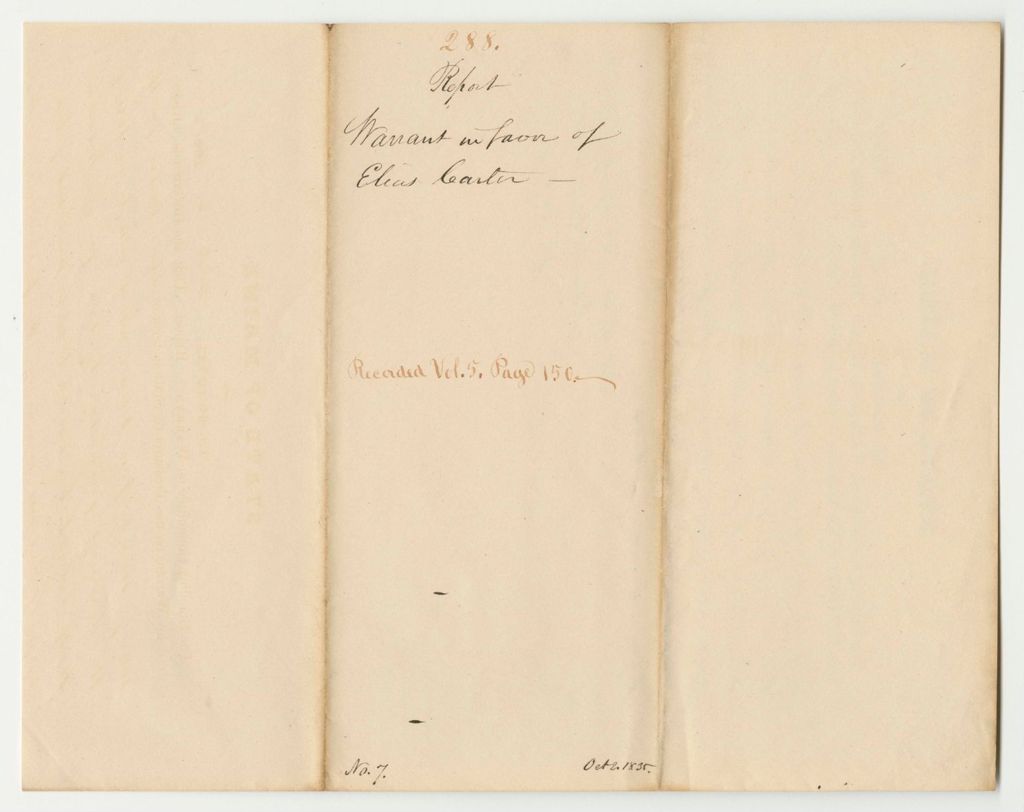 288.
Report
Warrant in favor of
Elias Carter —
Recorded Vol. 5. Page 150.
No. 7.
Oct 2. 1835.